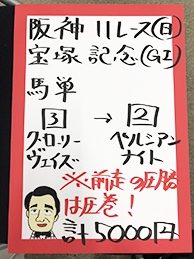 阪神11レース(日)
宝塚記念(GI)
馬単
3 → 2
グローリーヴェイズ
ペルシアンナイト
※前走の圧勝
は圧巻!
計5000円